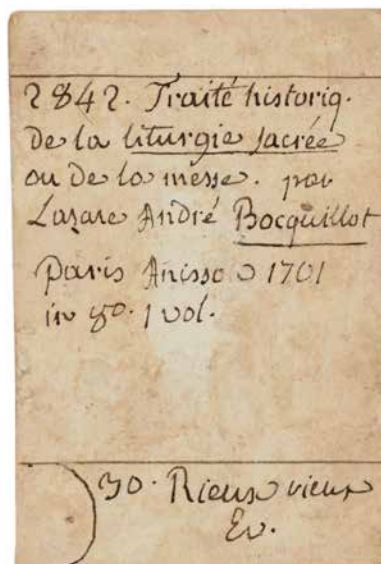 2842. Traité historiq.
de la liturgie sacrée
ou de la messe. par
Lazare André Bocquillot
Paris Anisson 1701
in 8°. 1 vol.
30. Rieux vieux
Ev.